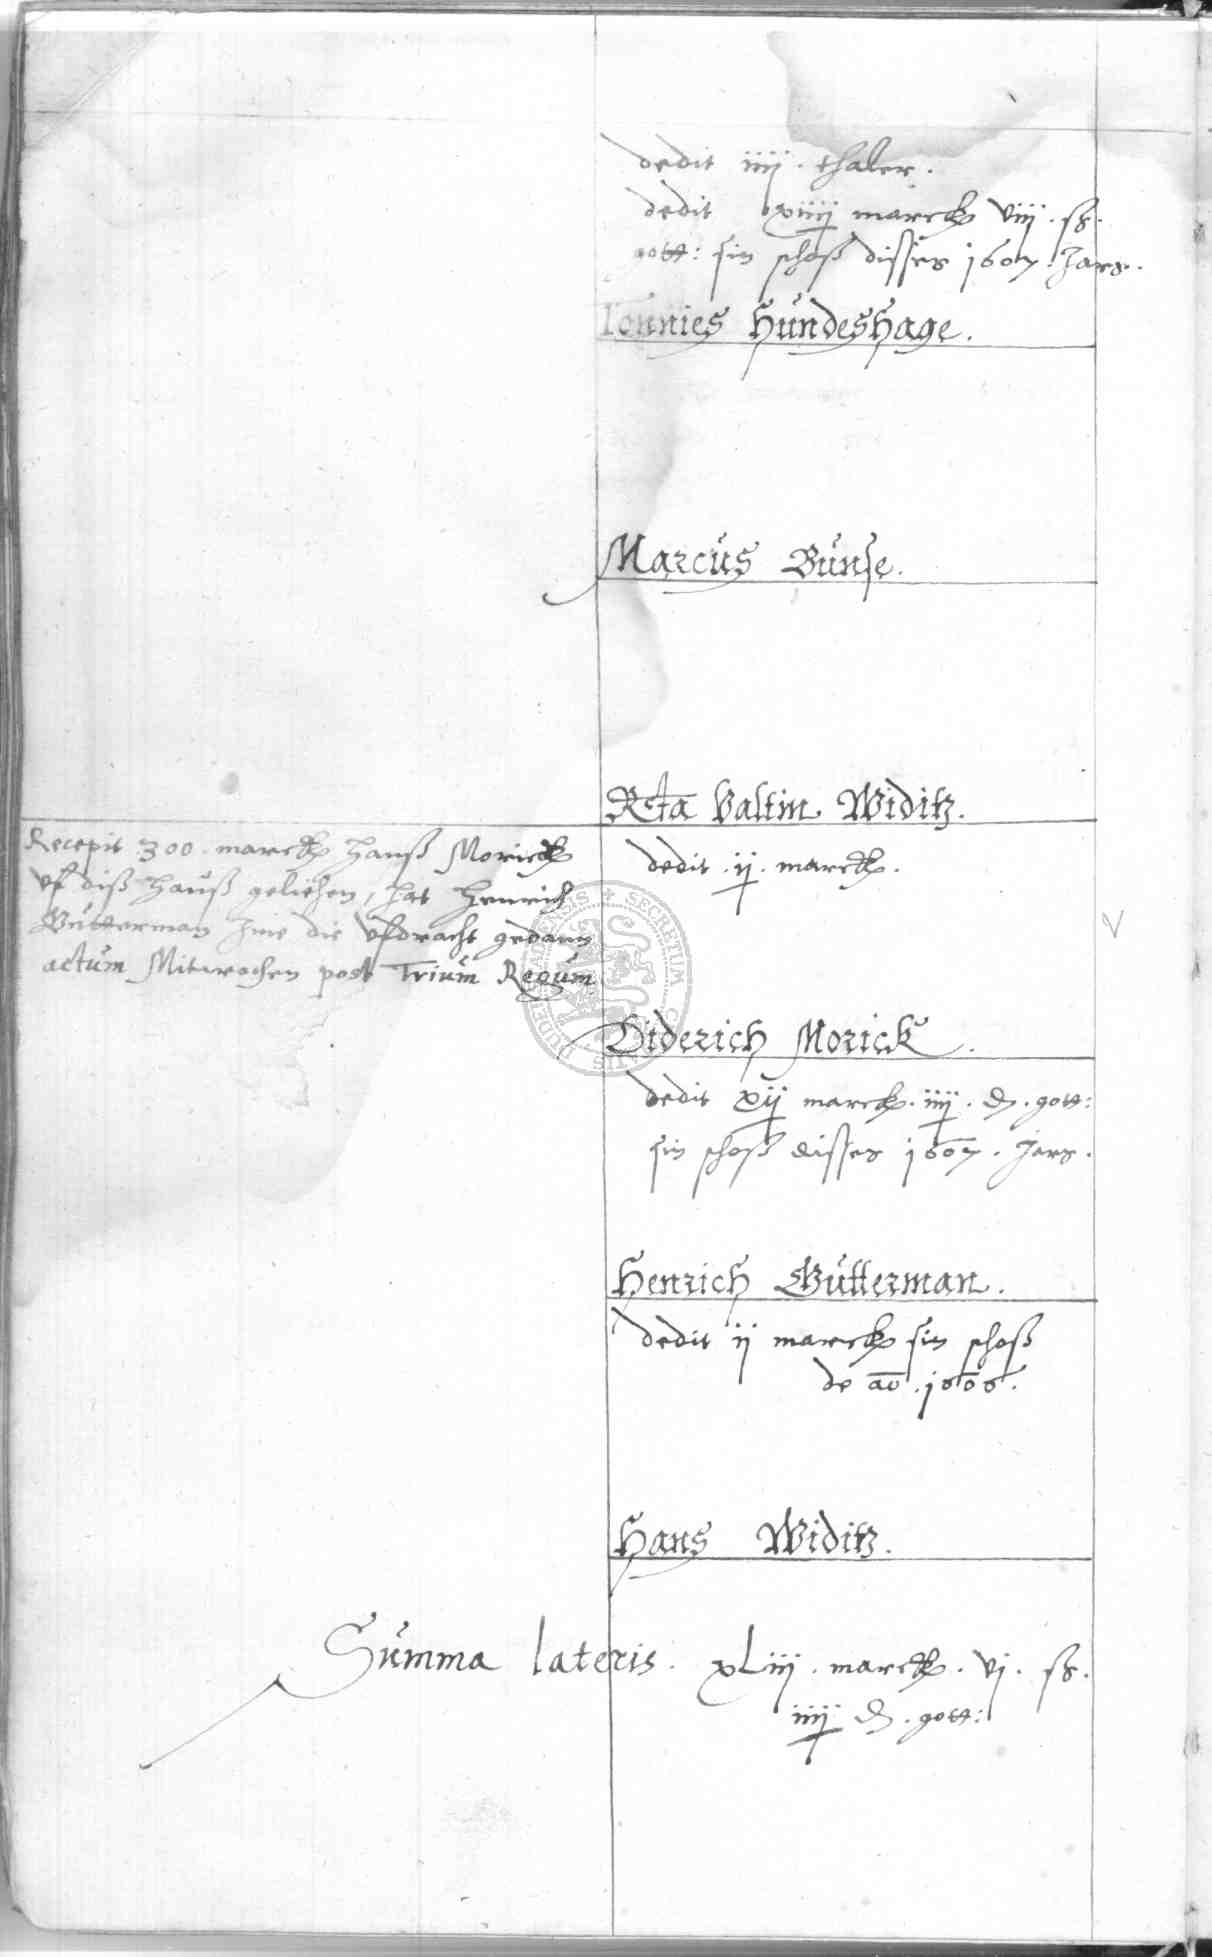 dedit iiij . thaler .
dedit xiiij marck viij . ß .
gott: sin schoß disses 1607 . Jars .
Tonnies Hundeshage .
Marcus Bunse .
Rcta Valtin Widitz .
Recepit 300 . marck Hanß Morick
uf diß hauß geliehen, hat Henrich
Gutterman Jme die ufdracht gedann
actum Mitwochen post Trium Regum
dedit . ij . marck .
Diderich Morick .
dedit xij marck . iiij . d . gott:
sin schoß disses 1607 . Jars .
Henrich Gutterman .
dedit ij marck sin schoß
de ao . 1606 .
Hans Widitz .
Summa lateris . xLiij . marck . vj . ß .
iiij d . gott:
SECRETUM